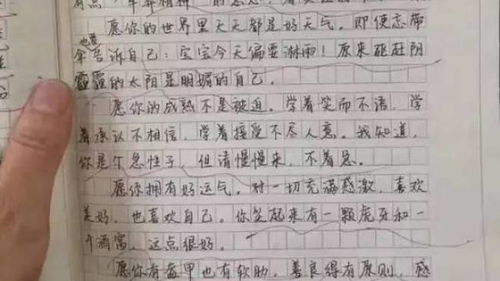 愿你的世界里天天都是好天气。即使忘带
伞也要告诉自己：宝宝今天偏要淋雨！原来驱赶阴
霾的太阳是明媚的自己。
愿你的成熟不是被迫。学着笑而不语，学
着承认不相信，学着接受不尽人意。我知道，
你是个急性子，但请慢慢来，不着急。
愿你拥有好运气。对一切充满感激，喜欢
美好，也喜欢自己。你笑起来有一颗虎牙和一
个酒窝，这点很好。
愿你有盔甲也有软肋，善良得有原则，感